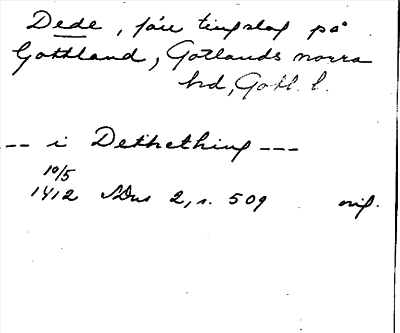 Dede, förr tingslag på
Gottland, Gotlands norra
hd, Gotl. l.
-- i Dethething ---
10/5
1412 SDns 2, s. 509 orig.